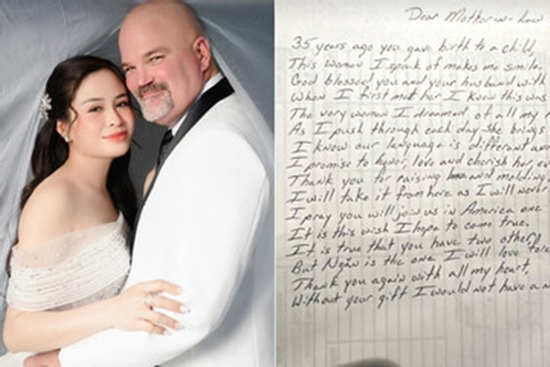 Dear Mother-n-Law
35 years ago you gave birth to a child,
This woman I speak of makes me smile,
God blessed you and your husband with
When I first met her I knew this was
The very woman I dreamed of all my
As I push through each day she brings
I know our language is different and
I promise to honor, love and cherish her
Thank you for raising her and molding
I will take it from here as I will never
I pray you will join us in America one
It is this wish I hope to come true.
It is true that you have two other
But Ngân is the one I will love
Thank you again with all my heart,
Without your gift I would not have a